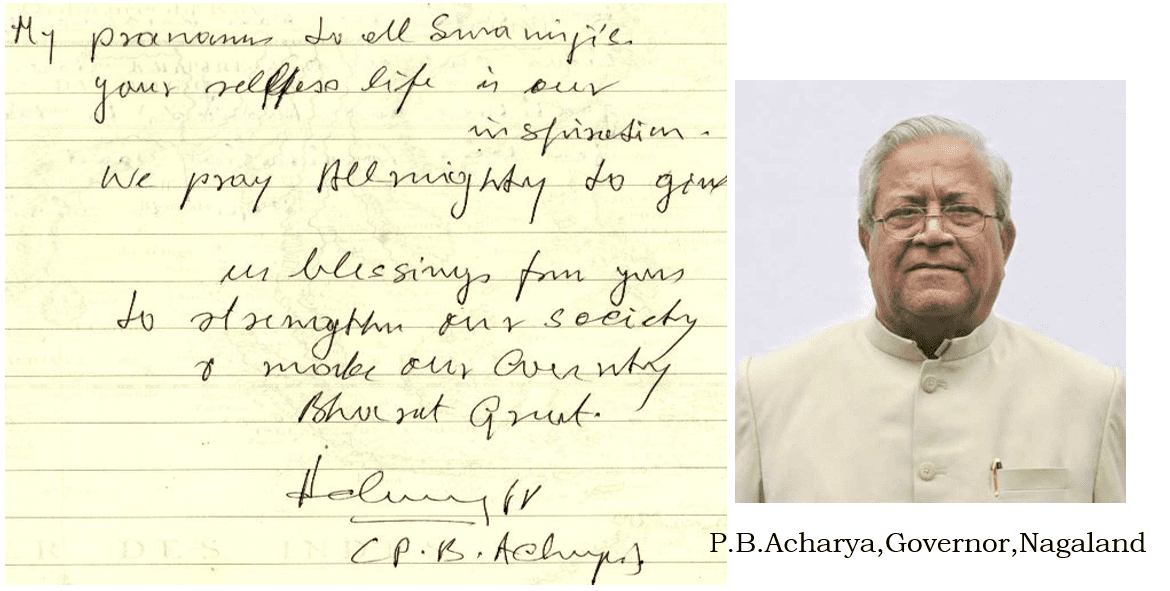 My pranams to all Swamiji's.
your selfless life is our
inspiration.
We pray Allmighty to give
us blessings from you
to strengthen our society
& make our Country
Bharat Great.
(P.B. Acharya)
P.B.Acharya,Governor,Nagaland